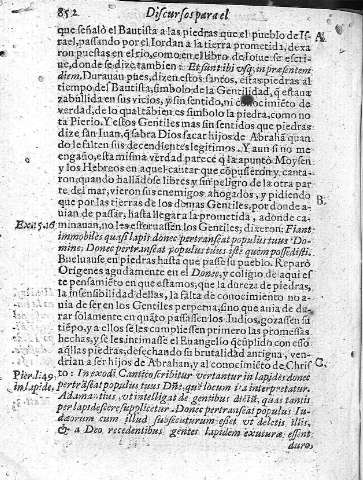 852 Discursos para el
que señaló el Bautista a las piedras que el pueblo de Is-
rael, passando por el Iordan a la tierra prometida, dexa
ron puestas en el rio, como en el libro de Iosue se escri-
ue, donde se dize tambien: Et sunt ibi vsq; in præsentem
diem. Durauan pues, dizen estos santos, estas piedras al
tiempo del Bautista, simbolo de la Gentilidad, q̃ estaua
zabullida en sus vicios, y sin sentido, ni conocimiẽto de
verdad, de lo qual tãbien es simbolo la piedra, como no
ta Pierio. Y estos Gentiles mas sin sentidos que piedras
dize san Iuan, q̃ sabra Dios sacar hijos de Abrahã quan
do le falten sus decendientes legitimos. Y aun si no me
engaño, esta misma verdad parece q̃ la apuntò Moysen
y los Hebreos en aquel cantar que cõpusieron y canta-
ron, quando hallãdose libres y sin peligro de la otra par
te del mar, vieron sus enemigos ahogados, y pidiendo
que por las tierras de los demas Gentiles, por donde a-
uian de passar, hasta llegar a la prometida, adonde ca-
minauan, no les estoruassen los Gentiles, dixeron: Fiant
immobiles quasi lapis donec pertranseat populus tuus Do-
mine: Donec pertranseat populus tuus iste quem possedisti.
Bueluanse en piedras hasta que passe su pueblo. Reparó
Origenes agudamente en el Donec, y coligio de aqui es
te pensamiẽto en que estamos, que la dureza de piedras,
la insensibilidad dellas, la falta de conocimiento no a-
uia de ser en los Gentiles perpetua, sino que auia de du-
rar solamente en quãto passassen los Iudios, gozassen su
tiẽpo, y a ellos se les cumpliessen primero las promessas
hechas, y se les intimasse el Euangelio q̃ cũplido con esso
aq̃llas piedras, desechando su brutalidad antigua, ven-
drian a ser hijos de Abrahan, y al conocimiẽto de Chris
to: In exodi Cantico scribitur vertantur in lapides donec
pertrãseat populus tuus Dñe. que locum ita interpretatur,
Adamantius, vt intelligat de gentibus dictũ, quas tantis
per lapidescere supplicetur. Donec pertranseat populus Iu-
dæorum cum illud subsecuturum esset vt deletis illis,
& a Deo recedentibus gentes lapidem exuturæ essent
duro,
A.
B.
C.
Exo. 15. 16
Pier. li. 49.
in lapide.